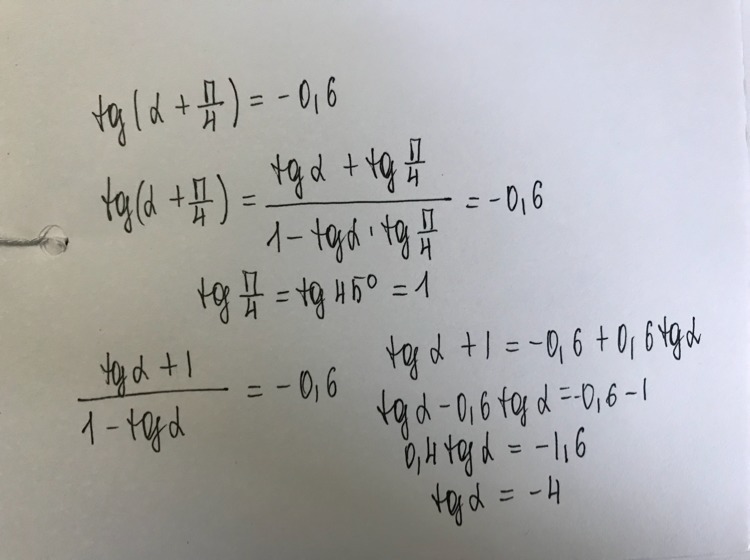 tg(α + π/4) = -0,6
tg(α + π/4) = (tgα + tg π/4)/(1 - tgα · tg π/4) = -0,6
tg π/4 = tg 45° = 1
(tgα + 1)/(1 - tgα) = -0,6
tgα + 1 = -0,6 + 0,6 tgα
tgα - 0,6 tgα = -0,6 - 1
0,4 tgα = -1,6
tgα = -4